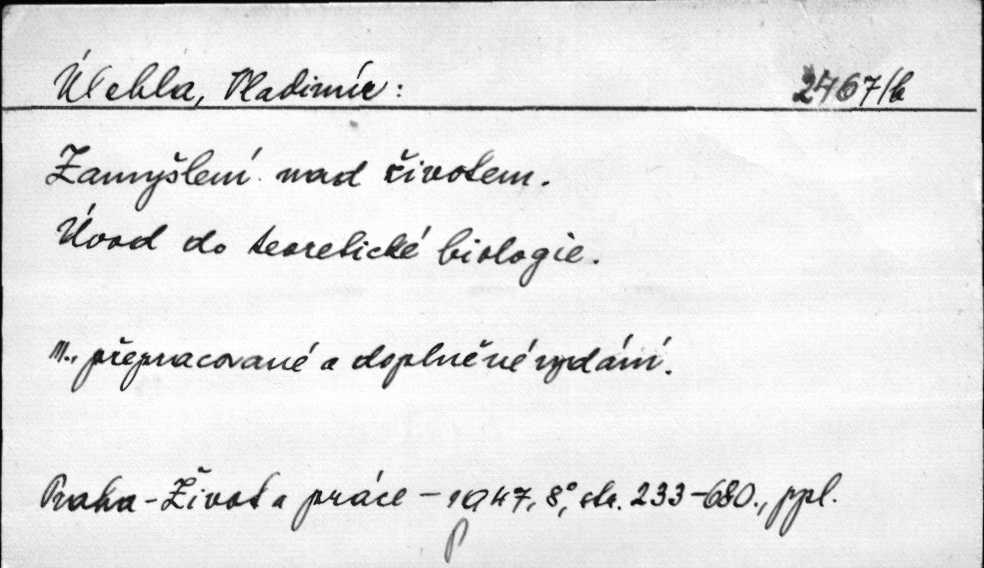 Úlehla, Vladimír: 2767/b
Zamyšlení nad životem.
Úvod do teoretické biologie.
III., přepracované a doplněné vydání.
Praha - Život a práce - 1947, 8°, str. 233-680., ppl.